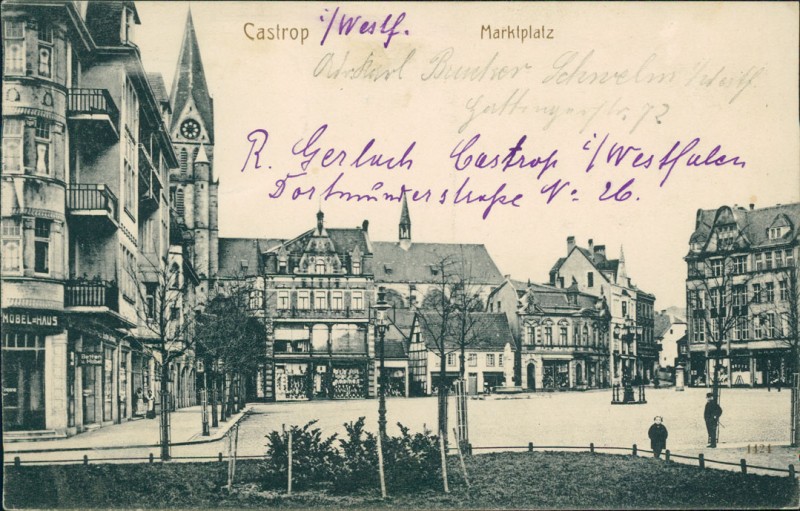 Castrop i/Westf. Marktplatz
Bucher Schwelm i/Westf.
Hattingerstr. 72
R. Gerlach Castrop i/Westfalen
Dortmunderstraße No 26.
MÖBEL=HAUS
Betten
1424